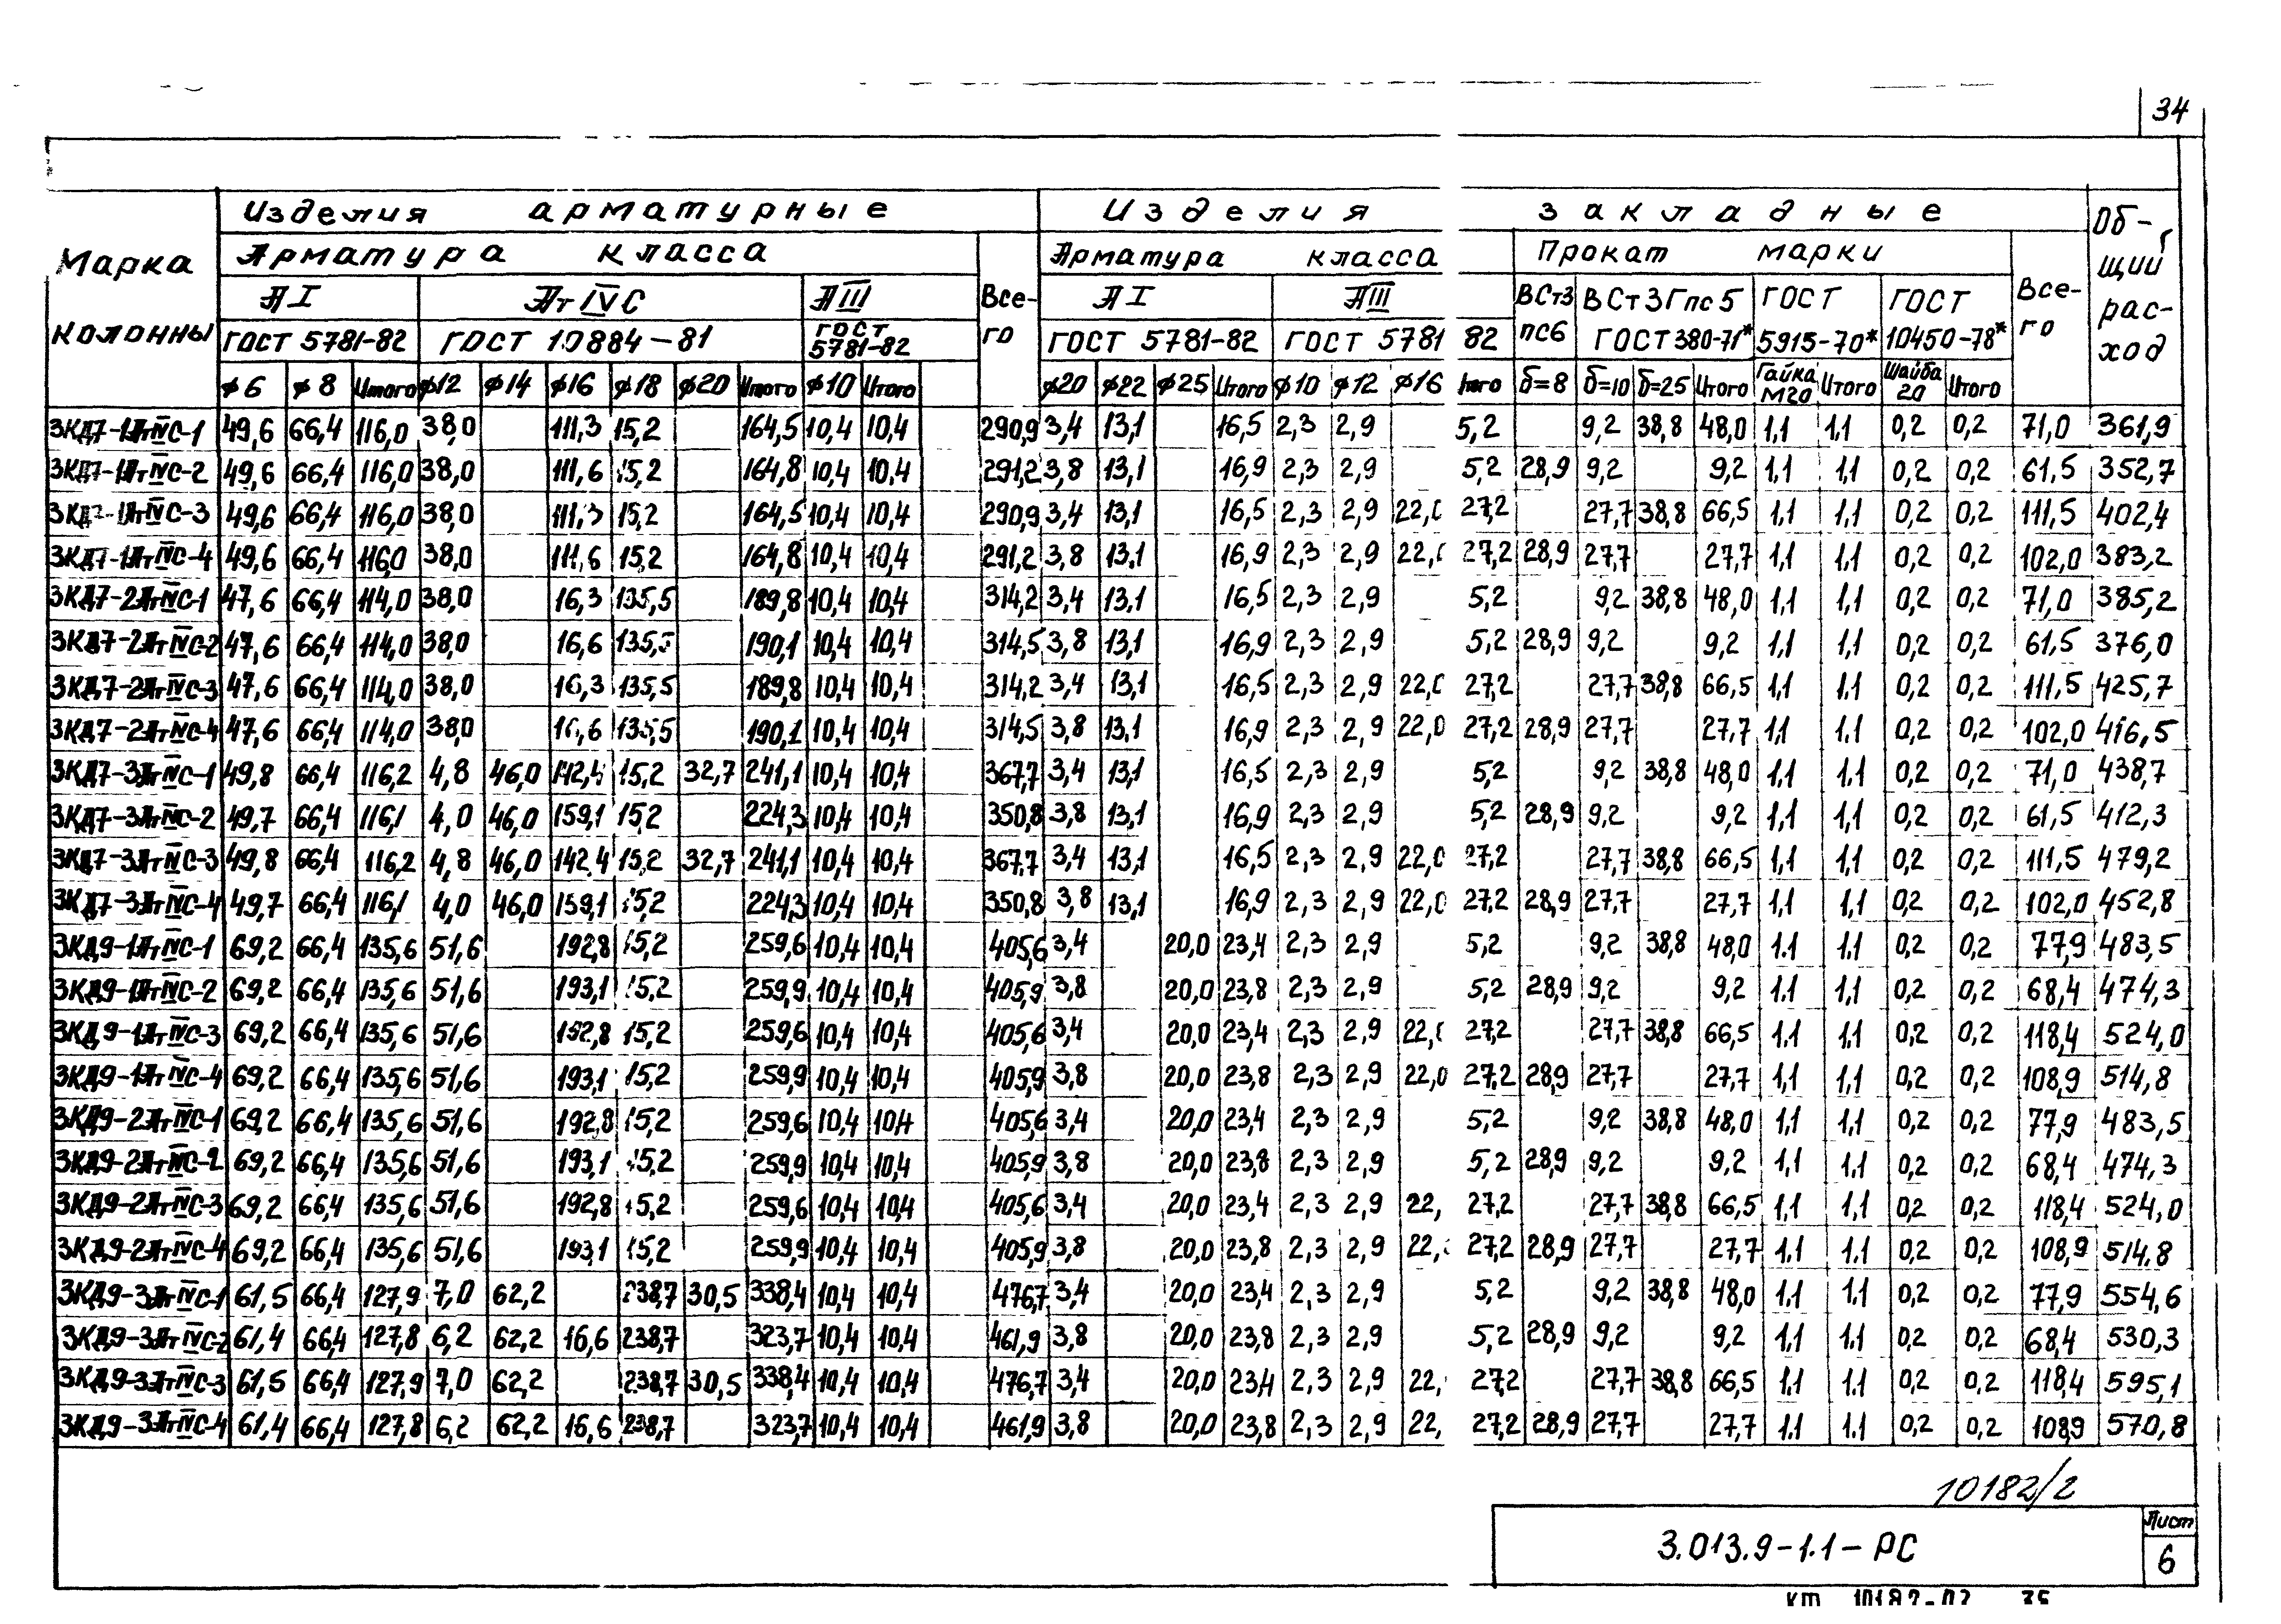 34
Изделия арматурные Изделия закладные
Марка колонны
Арматура класса
Все-го
Арматура класса
Прокат марки
Все-го
Общий рас-ход
АI АтIVС АIII АI АIII ВСт3 пс6 ВСт3Гпс5 ГОСТ ГОСТ
ГОСТ 5781-82 ГОСТ 10884-81 ГОСТ 5781-82 ГОСТ 5781-82 ГОСТ 5781 82 ГОСТ 380-71* 5915-70* 10450-78*
ϕ6 ϕ8 Итого ϕ12 ϕ14 ϕ16 ϕ18 ϕ20 Итого ϕ10 Итого ϕ20 ϕ22 ϕ25 Итого ϕ10 ϕ12 ϕ16 δ=8 δ=10 δ=25 Итого Гайка М20 Итого Шайба 20 Итого
3КД7-1АтIVС-1 49,6 66,4 116,0 38,0 111,3 15,2 164,5 10,4 10,4 290,9 3,4 13,1 16,5 2,3 2,9 5,2 9,2 38,8 48,0 1,1 1,1 0,2 0,2 71,0 361,9
3КД7-1АтIVС-2 49,6 66,4 116,0 38,0 111,6 15,2 164,8 10,4 10,4 291,2 3,8 13,1 16,9 2,3 2,9 5,2 28,9 9,2 9,2 1,1 1,1 0,2 0,2 61,5 352,7
3КД7-1АтIVС-3 49,6 66,4 116,0 38,0 111,3 15,2 164,5 10,4 10,4 290,9 3,4 13,1 16,5 2,3 2,9 22,0 27,2 27,7 38,8 66,5 1,1 1,1 0,2 0,2 111,5 402,4
3КД7-1АтIVС-4 49,6 66,4 116,0 38,0 111,6 15,2 164,8 10,4 10,4 291,2 3,8 13,1 16,9 2,3 2,9 22,0 27,2 28,9 27,7 27,7 1,1 1,1 0,2 0,2 102,0 383,2
3КД7-2АтIVС-1 47,6 66,4 114,0 38,0 16,3 135,5 189,8 10,4 10,4 314,2 3,4 13,1 16,5 2,3 2,9 5,2 9,2 38,8 48,0 1,1 1,1 0,2 0,2 71,0 385,2
3КД7-2АтIVС-2 47,6 66,4 114,0 38,0 16,6 135,5 190,1 10,4 10,4 314,5 3,8 13,1 16,9 2,3 2,9 5,2 28,9 9,2 9,2 1,1 1,1 0,2 0,2 61,5 376,0
3КД7-2АтIVС-3 47,6 66,4 114,0 38,0 16,3 135,5 189,8 10,4 10,4 314,2 3,4 13,1 16,5 2,3 2,9 22,0 27,2 27,7 38,8 66,5 1,1 1,1 0,2 0,2 111,5 425,7
3КД7-2АтIVС-4 47,6 66,4 114,0 38,0 16,6 135,5 190,1 10,4 10,4 314,5 3,8 13,1 16,9 2,3 2,9 22,0 27,2 28,9 27,7 27,7 1,1 1,1 0,2 0,2 102,0 416,5
3КД7-3АтIVС-1 49,8 66,4 116,2 4,8 46,0 142,4 15,2 32,7 241,1 10,4 10,4 367,7 3,4 13,1 16,5 2,3 2,9 5,2 9,2 38,8 48,0 1,1 1,1 0,2 0,2 71,0 438,7
3КД7-3АтIVС-2 49,7 66,4 116,1 4,0 46,0 159,1 15,2 224,3 10,4 10,4 350,8 3,8 13,1 16,9 2,3 2,9 5,2 28,9 9,2 9,2 1,1 1,1 0,2 0,2 61,5 412,3
3КД7-3АтIVС-3 49,8 66,4 116,2 4,8 46,0 142,4 15,2 32,7 241,1 10,4 10,4 367,7 3,4 13,1 16,5 2,3 2,9 22,0 27,2 27,7 38,8 66,5 1,1 1,1 0,2 0,2 111,5 479,2
3КД7-3АтIVС-4 49,7 66,4 116,1 4,0 46,0 159,1 15,2 224,3 10,4 10,4 350,8 3,8 13,1 16,9 2,3 2,9 22,0 27,2 28,9 27,7 27,7 1,1 1,1 0,2 0,2 102,0 452,8
3КД9-1АтIVС-1 69,2 66,4 135,6 51,6 192,8 15,2 259,6 10,4 10,4 405,6 3,4 20,0 23,4 2,3 2,9 5,2 9,2 38,8 48,0 1.1 1.1 0,2 0,2 77,9 483,5
3КД9-1АтIVС-2 69,2 66,4 135,6 51,6 193,1 15,2 259,9 10,4 10,4 405,9 3,8 20,0 23,8 2,3 2,9 5,2 28,9 9,2 9,2 1.1 1,1 0,2 0,2 68,4 474,3
3КД9-1АтIVС-3 69,2 66,4 135,6 51,6 192,8 15,2 259,6 10,4 10,4 405,6 3,4 20,0 23,4 2,3 2,9 22,0 27,2 27,7 38,8 66,5 1.1 1.1 0,2 0,2 118,4 524,0
3КД9-1АтIVС-4 69,2 66,4 135,6 51,6 193,1 15,2 259,9 10,4 10,4 405,9 3,8 20,0 23,8 2,3 2,9 22,0 27,2 28,9 27,7 27,7 1,1 1,1 0,2 0,2 108,9 514,8
3КД9-2АтIVС-1 69,2 66,4 135,6 51,6 192,8 15,2 259,6 10,4 10,4 405,6 3,4 20,0 23,4 2,3 2,9 5,2 9,2 38,8 48,0 1,1 1,1 0,2 0,2 77,9 483,5
3КД9-2АтIVС-2 69,2 66,4 135,6 51,6 193,1 15,2 259,9 10,4 10,4 405,9 3,8 20,0 23,8 2,3 2,9 5,2 28,9 9,2 9,2 1,1 1.1 0,2 0,2 68,4 474,3
3КД9-2АтIVС-3 69,2 66,4 135,6 51,6 192,8 15,2 259,6 10,4 10,4 405,6 3,4 20,0 23,4 2,3 2,9 22, 27,2 27,7 38,8 66,5 1,1 1,1 0,2 0,2 118,4 524,0
3КД9-2АтIVС-4 69,2 66,4 135,6 51,6 193,1 15,2 259,9 10,4 10,4 405,9 3,8 20,0 23,8 2,3 2,9 22, 27,2 28,9 27,7 27,7 1.1 1.1 0,2 0,2 108,9 514.8
3КД9-3АтIVС-1 61,5 66,4 127,9 7,0 62,2 238,7 30,5 338,4 10,4 10,4 476,7 3,4 20,0 23,4 2,3 2,9 5,2 9,2 38,8 48,0 1.1 1.1 0,2 0,2 77,9 554,6
3КД9-3АтIVС-2 61,4 66,4 127,8 6,2 62,2 16,6 238,7 323,7 10,4 10,4 461,9 3,8 20,0 23,8 2,3 2,9 5,2 28,9 9,2 9,2 1,1 1.1 0,2 0,2 68,4 530,3
3КД9-3АтIVС-3 61,5 66,4 127,9 7,0 62,2 238,7 30,5 338,4 10,4 10,4 476,7 3,4 20,0 23,4 2,3 2,9 22, 27,2 27,7 38,8 66,5 1.1 1.1 0,2 0,2 118,4 595,1
3КД9-3АтIVС-4 61,4 66,4 127,8 6,2 62,2 16,6 238,7 323,7 10,4 10,4 461,9 3,8 20,0 23,8 2,3 2,9 22, 27,2 28,9 27,7 27,7 1.1 1.1 0,2 0,2 108,9 570,8
10182/2
3.013.9-1.1-РС
Лист
6